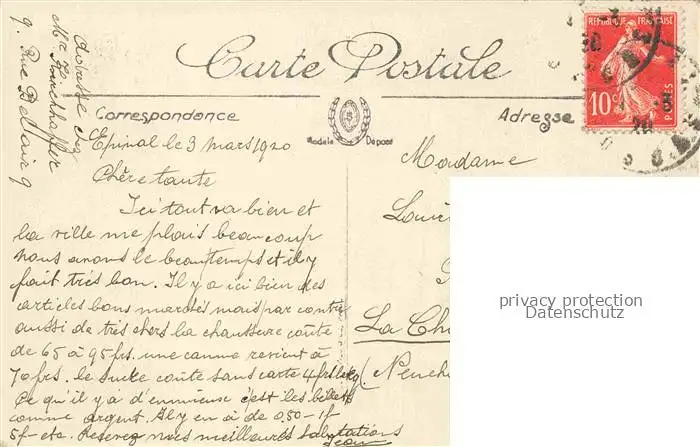 Carte Postale
RÉPUBLIQUE FRANÇAISE
10c
POSTES
Correspondance
Adresse
Modèle Déposé
Adresse chez
Mr Kirchhoffer
9. Rue Bellair 9
Epinal le 3 mars 1920
Chère tante
Ici tout va bien et
la ville me plais beaucoup
nous avons le beau temps et il y
fait très bon. Il y a ici bien des
articles bons marchés mais par contre
aussi de très chers la chaussure coûte
de 65 à 95 frs. une canne revient à
70 frs. le sucre coûte sans carte 4 frs le kg
Ce qu'il y a d'ennuieux c'est les billets
comme argent. Il y en à de 0,50 - 1 f
5 f - etc. Recevez nos meilleures salutations
Jean
Madame
Loui
La Ch
(Neuch
privacy protection
Datenschutz